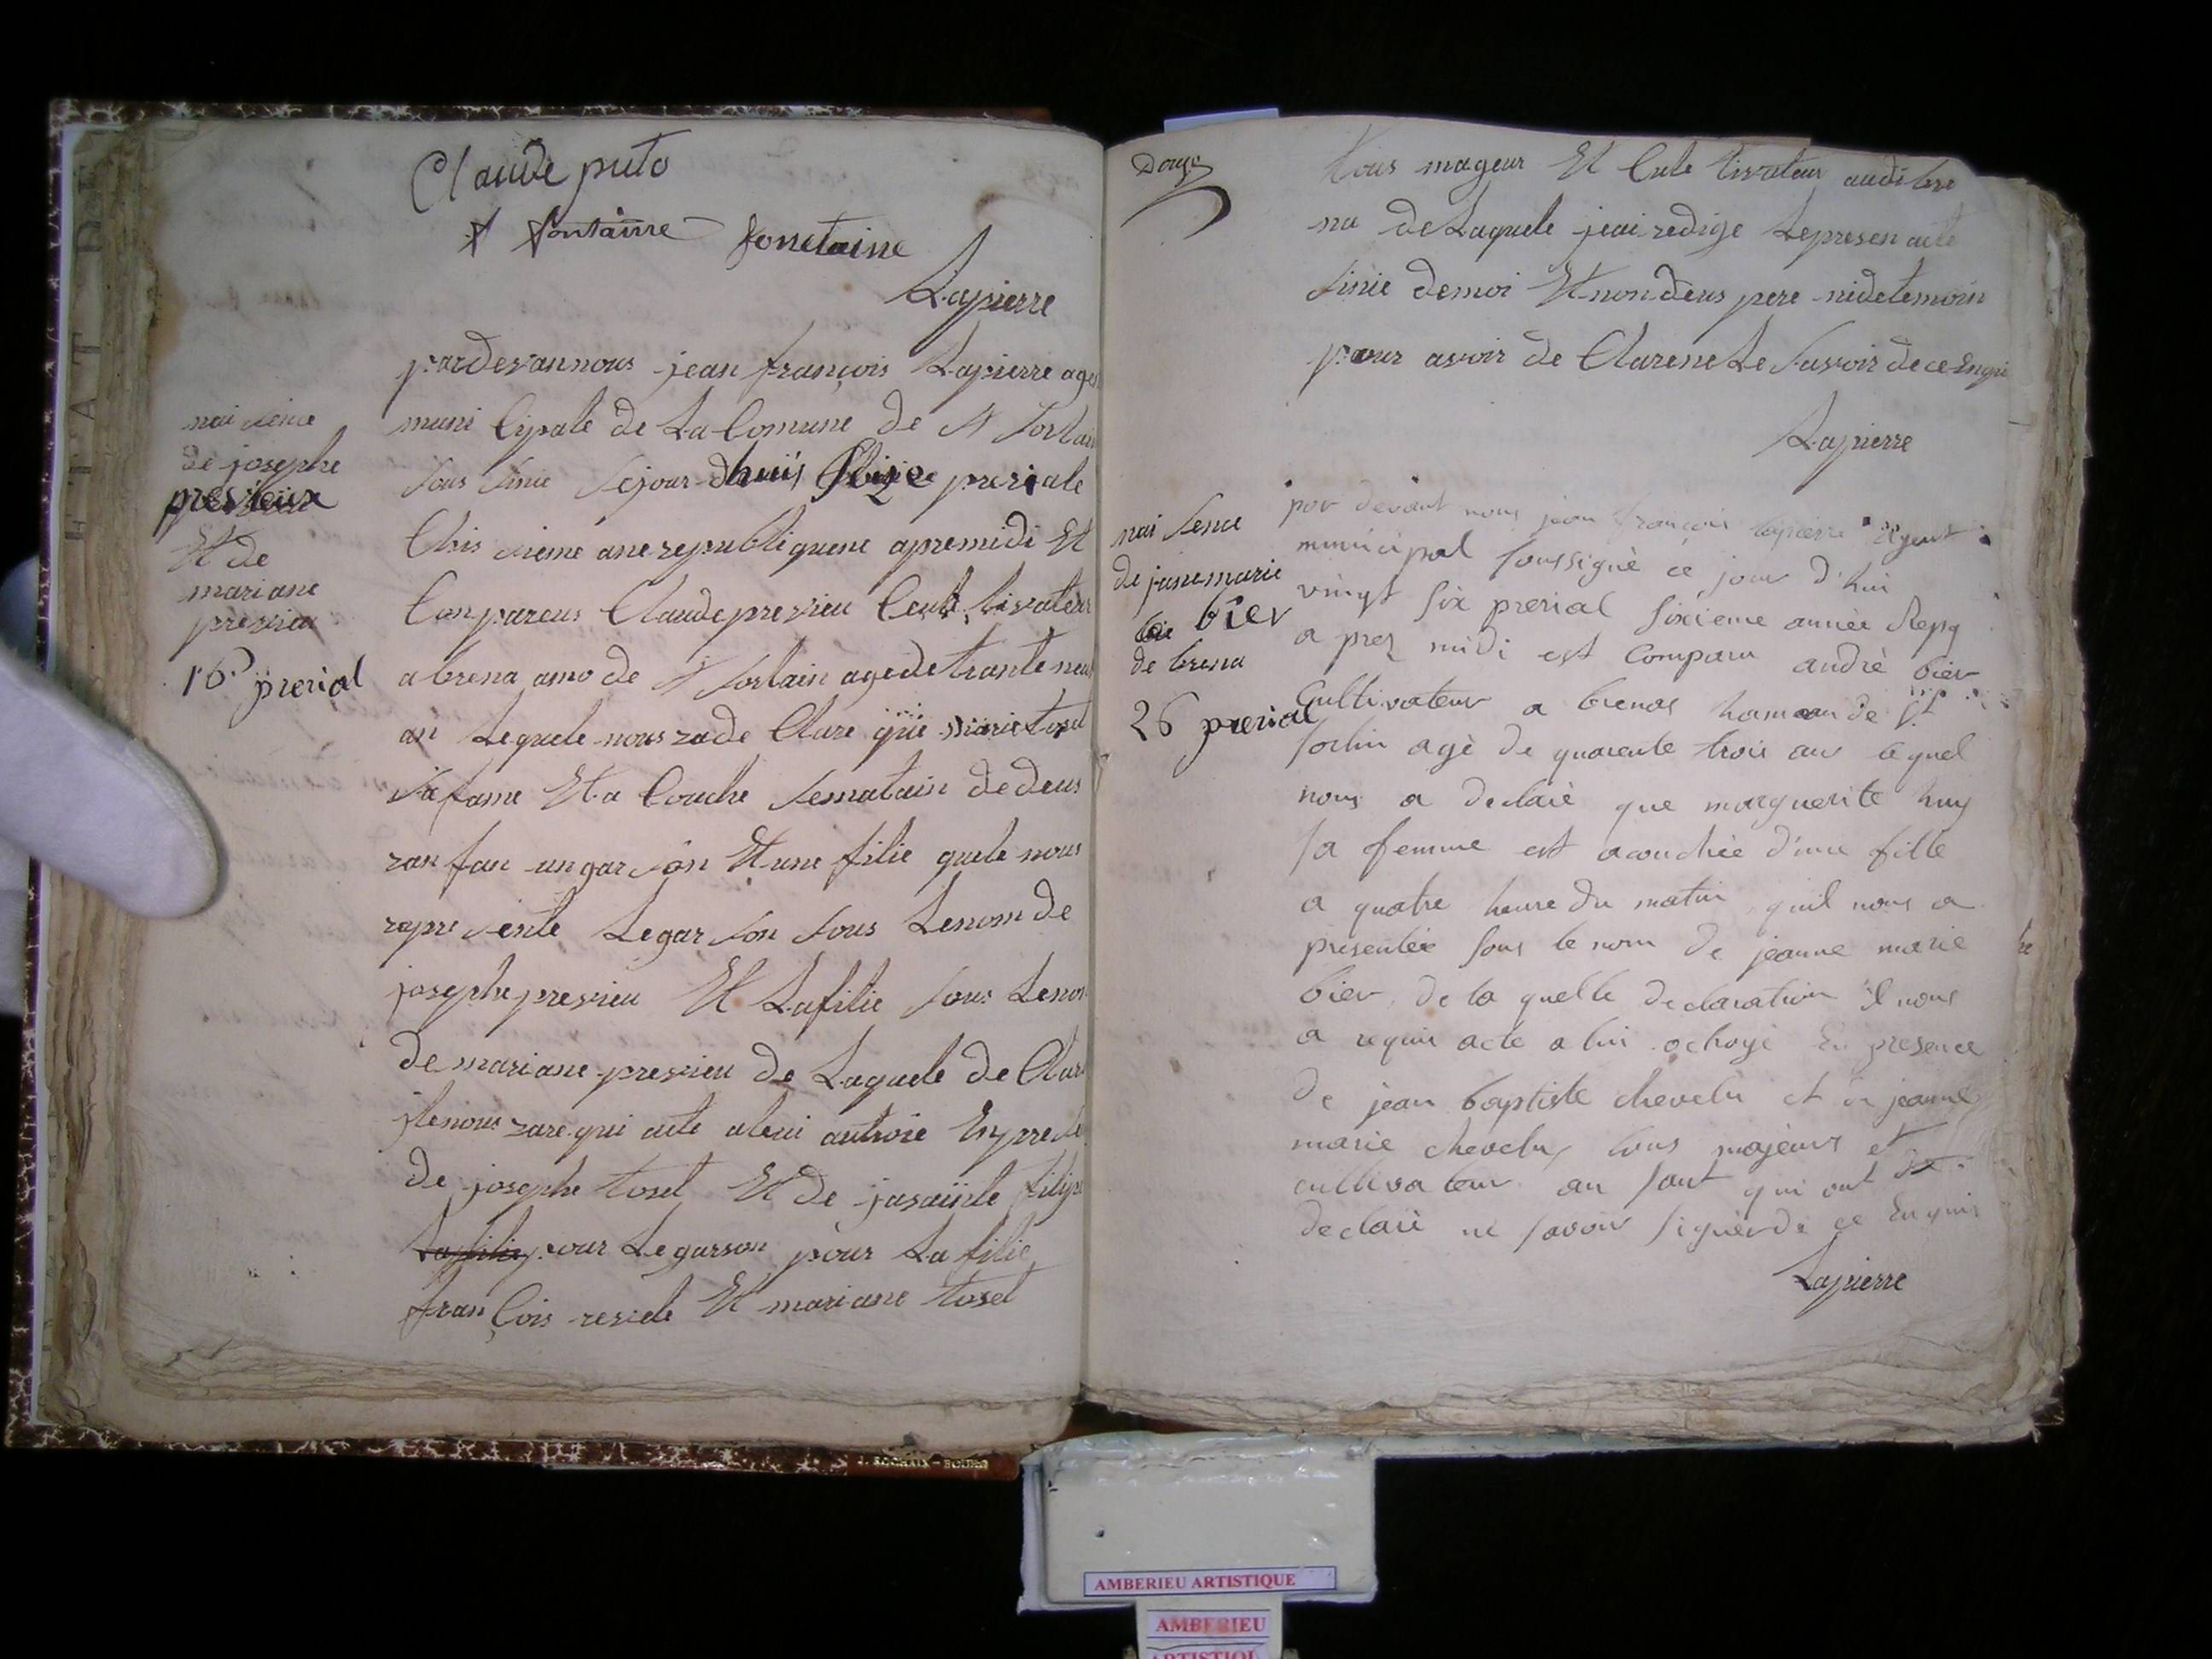 Claude puto
f fontaine fonetaine
Lapierre
pardevannous jean françois Lapierre age
muni Cipale de La Comune de St Sorlain
nai sence
de josephe
presvieux
Et de
mariane
presvieu
16 prerial
sous sinie sejour dhuis Saize preriale
Chis sieme ane republiquene apremidi Et
Conpareus Claude presvieu Ceule tivateur
a brena amo de St Sorlain age de trante neuf
an Lequele nous za de Clare que marie tosel
sa fame Et a Couche sematain de deus
zan fan un garson Et une filie quele nous
represente Legarson sous Lenom de
josephe presvieu Et Lafilie sous Lenon
de mariane presvieu de Laquele de Clara
ile nous zare qui acte a leui autroie En prese
de josephe tosel Et de jasainte filipe
La filie pour Le garson pour La filie
fran Çois resvele Et mariane tosel
Douze
tous mageur Et Cule tivateur audi bre
na de Laquele jeai redige Lepresen acte
sinie de moi Et non deus pere ni de temoin
pour avoir de Clarene Le savoir de ce Enqui
Lapierre
nai sence
de jane marie
bier
de brena
26 prerial
par devant nous jean françois lapierre Agent
municipal soussigné ce jour d'hui
vingt six prerial sixieme année Repq
a prez midi est comparu andrè bier
Cultivateur a brenas hameau de St
Sorlin agè de quarente trois ans lequel
nous a declaré que marguerite huy
sa femme est acouchèe d'une fille
a quatre heure du matin qu'il nous a
presentèe sous le nom de jeanne marie
bier de la quelle declaration il nous
a requis acte a lui octroyé En presence
de jean baptiste chevelu et de jeanne
marie chevelu, tous majeurs et
cultivateur au saut qui ont
declaré ne savoir signer de ce Enquis
Lapierre
J. ROCHAIX - BOURG
AMBERIEU ARTISTIQUE
AMBERIEU
ARTISTIQU